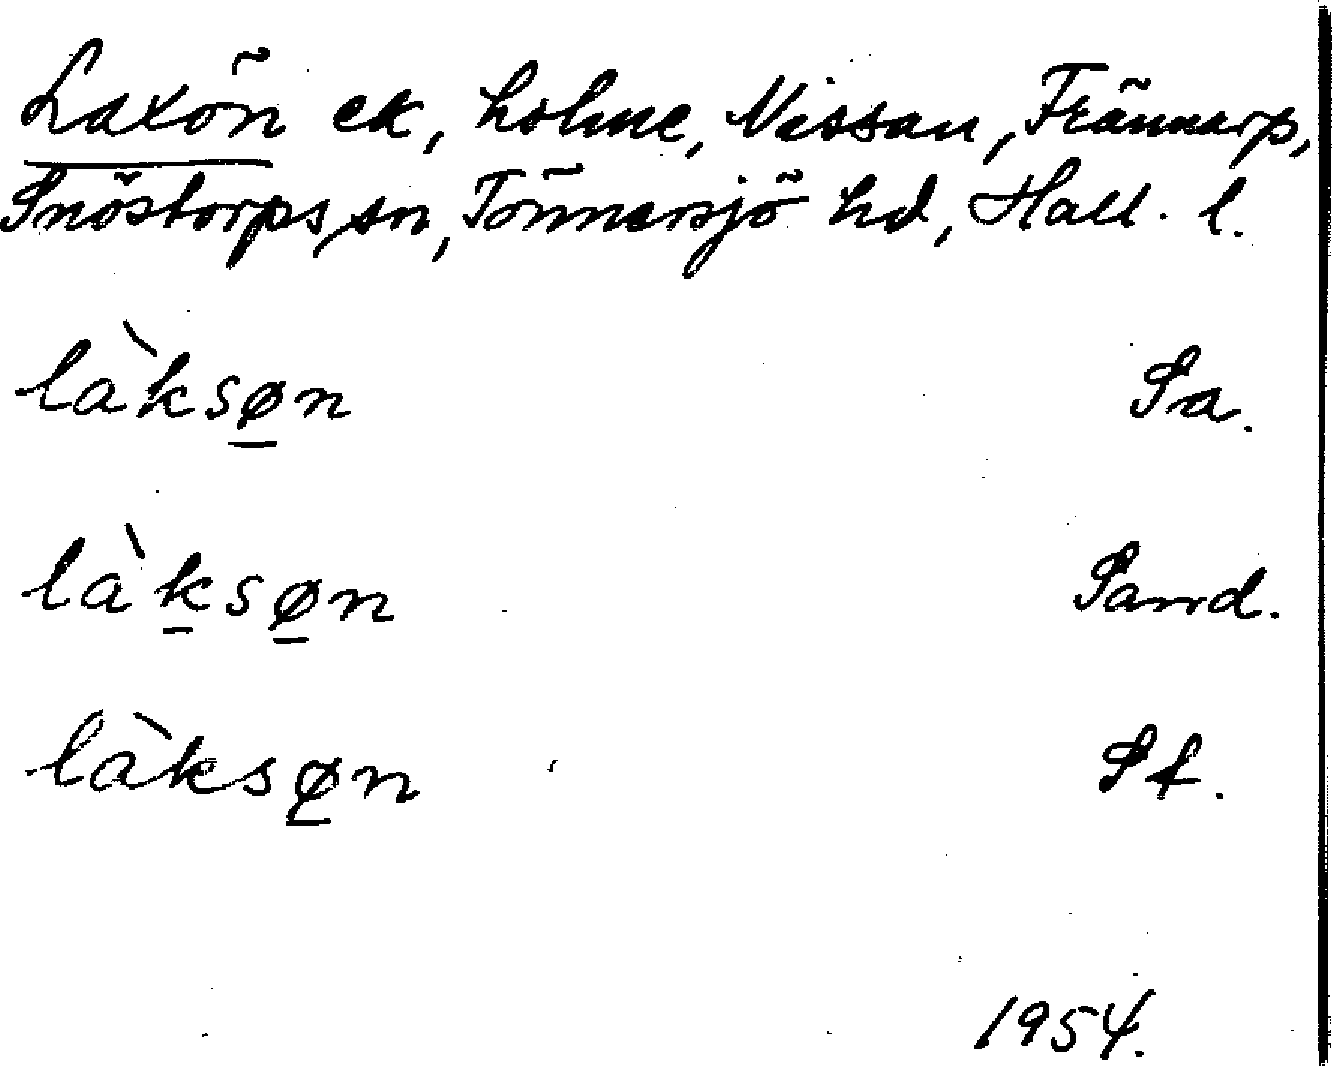 Laxön ck, holme, Nissan, Frännarp,
Snöstorps sn, Tönnersjö hd, Hall. l.
làksøn Sa.
làksøn Sand.
làksøn Sf.
1954.